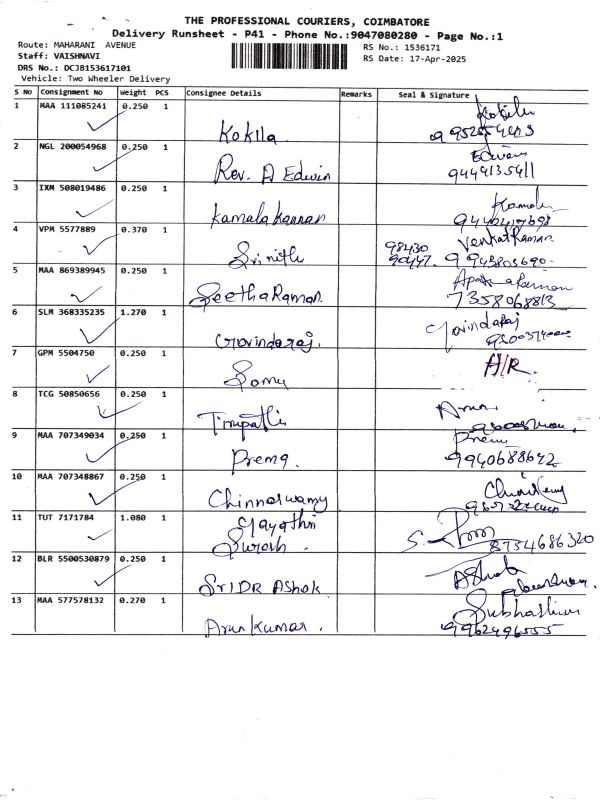 THE PROFESSIONAL COURIERS, COIMBATORE
Delivery Runsheet - P41 - Phone No.:9047080280 - Page No.:1
Route: MAHARANI AVENUE
RS No.: 1536171
Staff: VAISHNAVI
RS Date: 17-Apr-2025
DRS No.: DCJB153617101
Vehicle: Two Wheeler Delivery
S No Consignment No Weight PCS Consignee Details Remarks Seal & Signature
1 MAA 111085241 0.250 1 Kokila
2 NGL 200054968 0.250 1 Rev. A Edwin Edwin
9449135411
3 IXM 508019486 0.250 1 Kamalakannan
4 VPM 5577889 0.370 1 Srinithi 98430 Venkat Raman
90447. 9943803690-
5 MAA 869389945 0.250 1 SeethaRaman
7358068813
6 SLM 368335235 1.270 1 Govindaraj. Govindaraj
7 GPM 5504750 0.250 1 Somu H/R.
8 TCG 50850656 0.250 1 Tirupathi
9 MAA 707349034 0.250 1 Prema. Prem
9940688642
10 MAA 707348867 0.250 1 Chinnaswamy
11 TUT 7171784 1.080 1 Gayathri
Suresh. 8754686320
12 BLR 5500530879 0.250 1 Sri DR Ashok. AShok
13 MAA 577578132 0.270 1 Arun Kumar.
9962496555